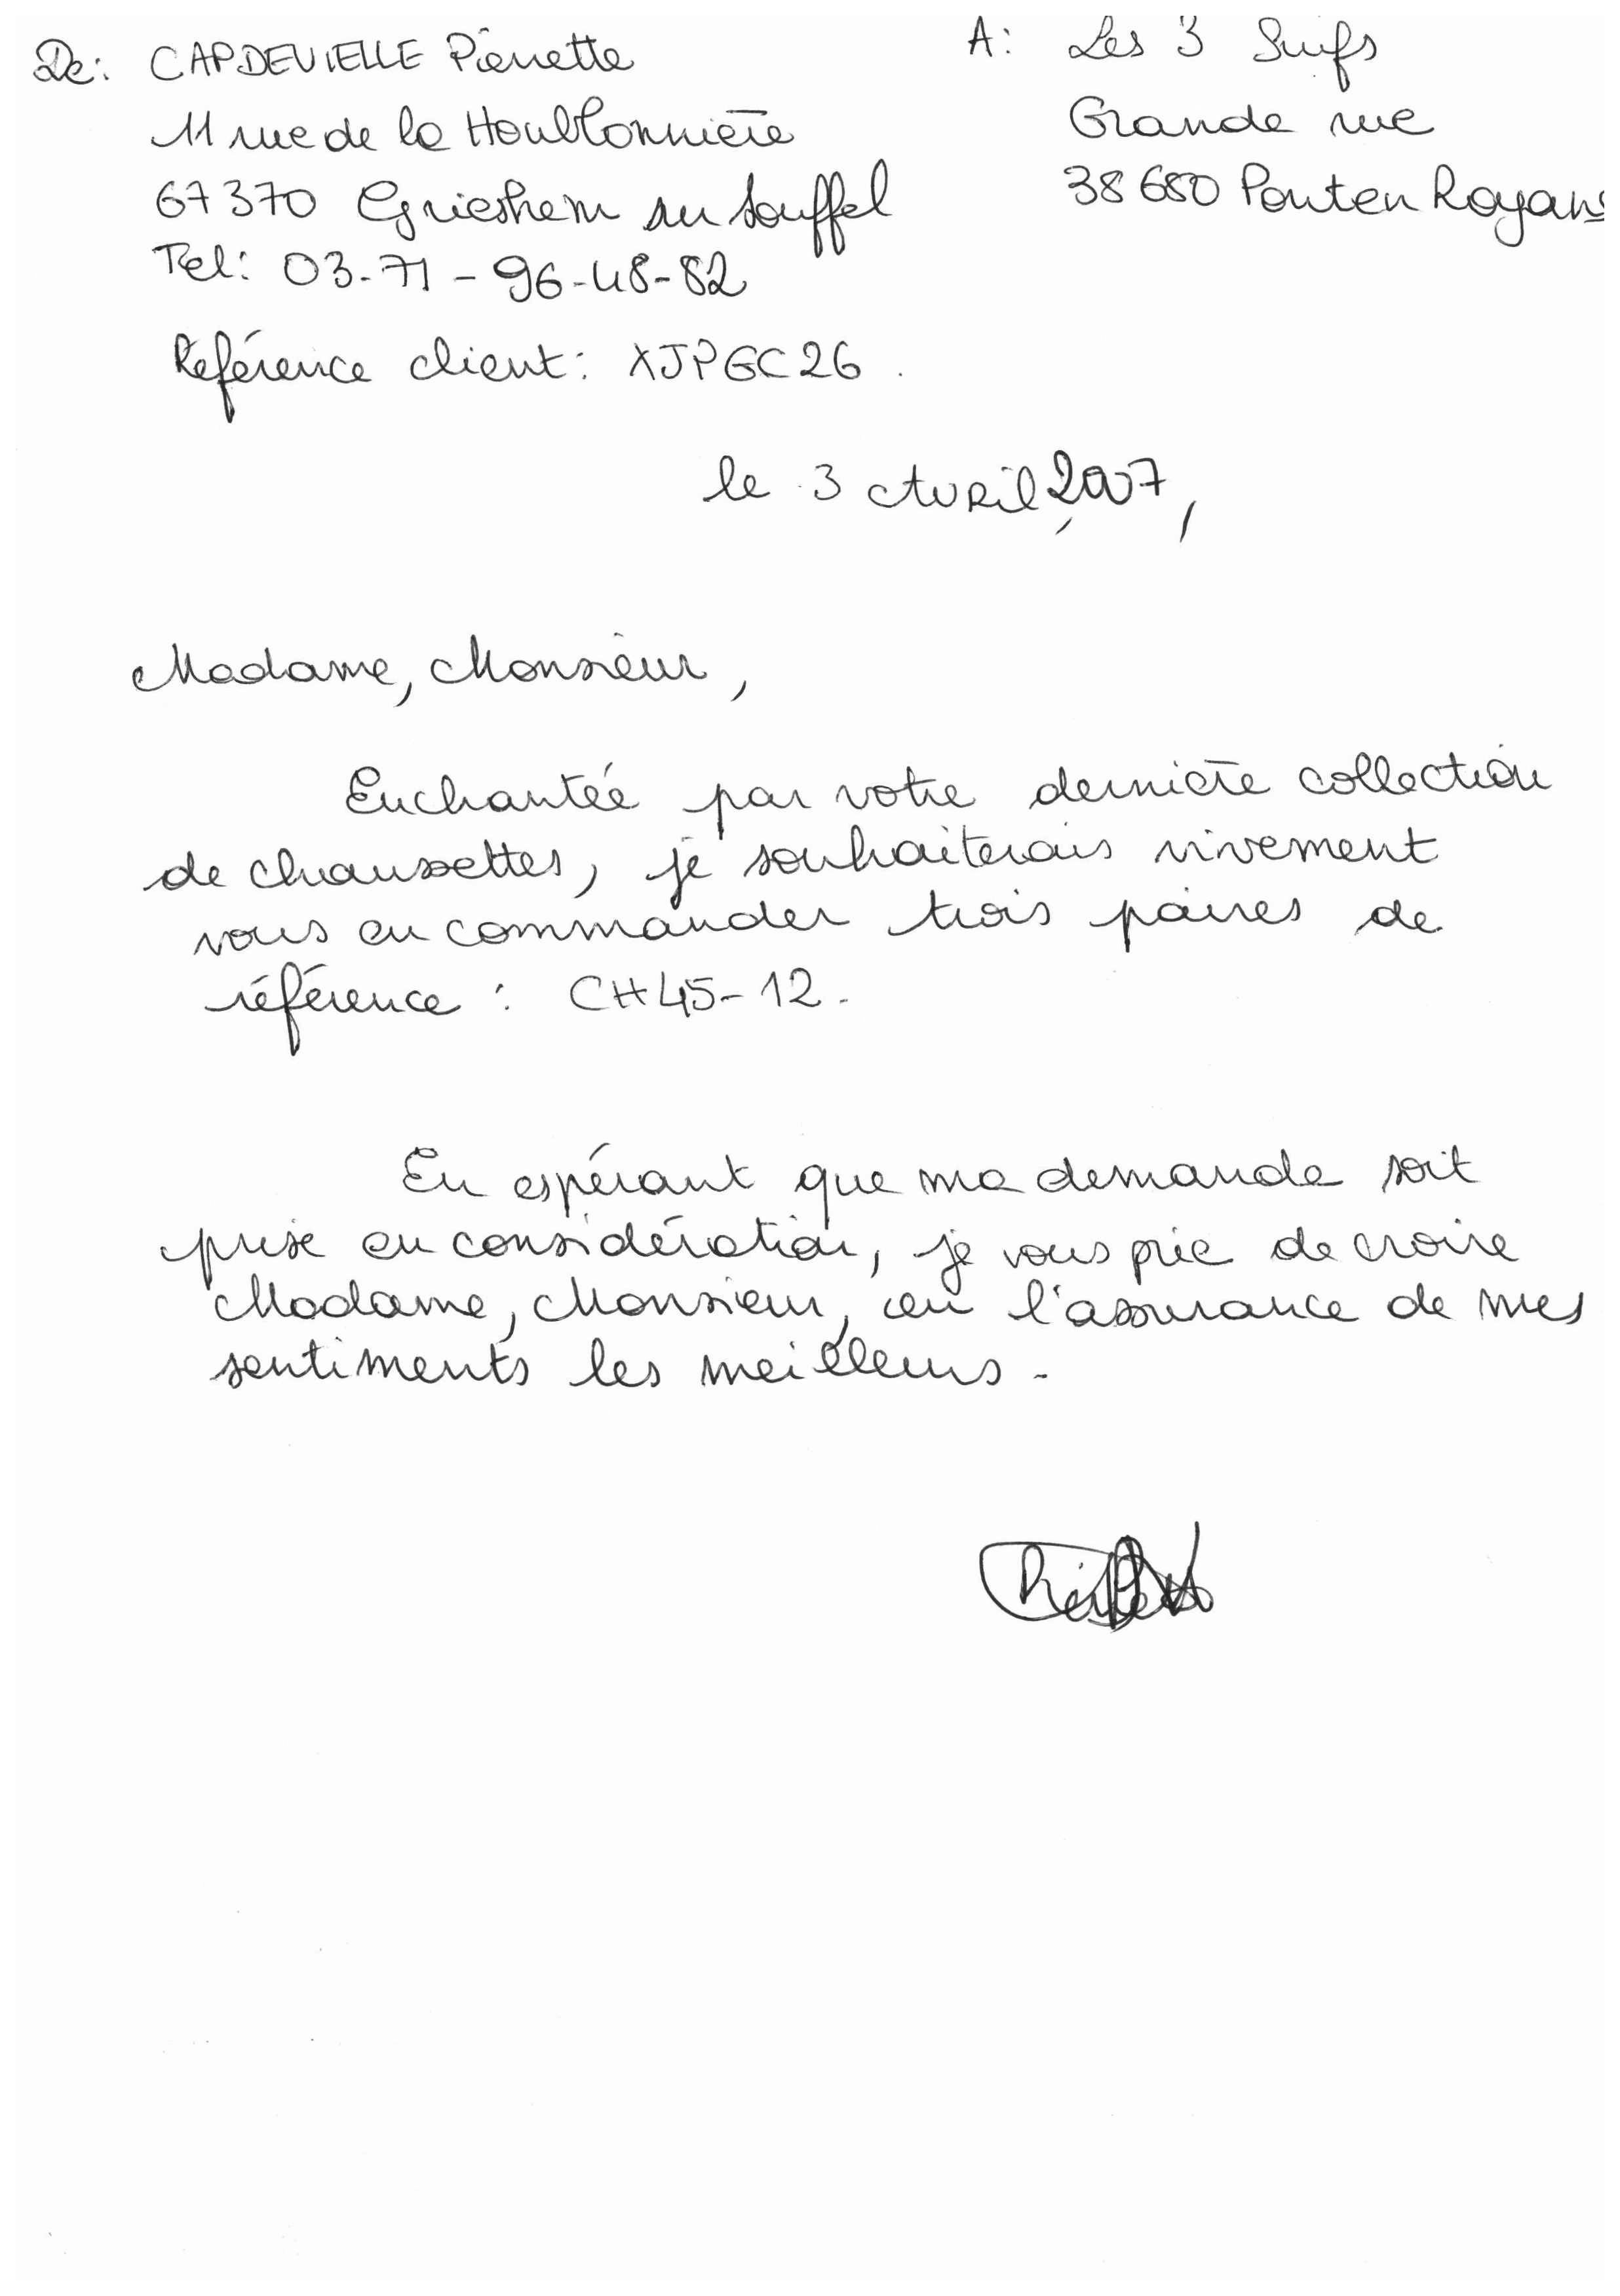 De: CAPDEVIELLE Pierrette
11 rue de la Houblonnière
67370 Griesheim sur Souffel
Tel: 03-71-96-48-82
Référence client: XJPGC26.
A: Les 3 Suifs
Grande rue
38680 Ponten Royans
le 3 Avril 2007,
Madame, Monsieur,
Enchantée par votre dernière collection
de chaussettes, je souhaiterais vivement
vous en commander trois paires de
référence : CH45-12.
En espérant que ma demande soit
prise en considération, je vous prie de croire
Madame, Monsieur, en l'assurance de mes
sentiments les meilleurs.